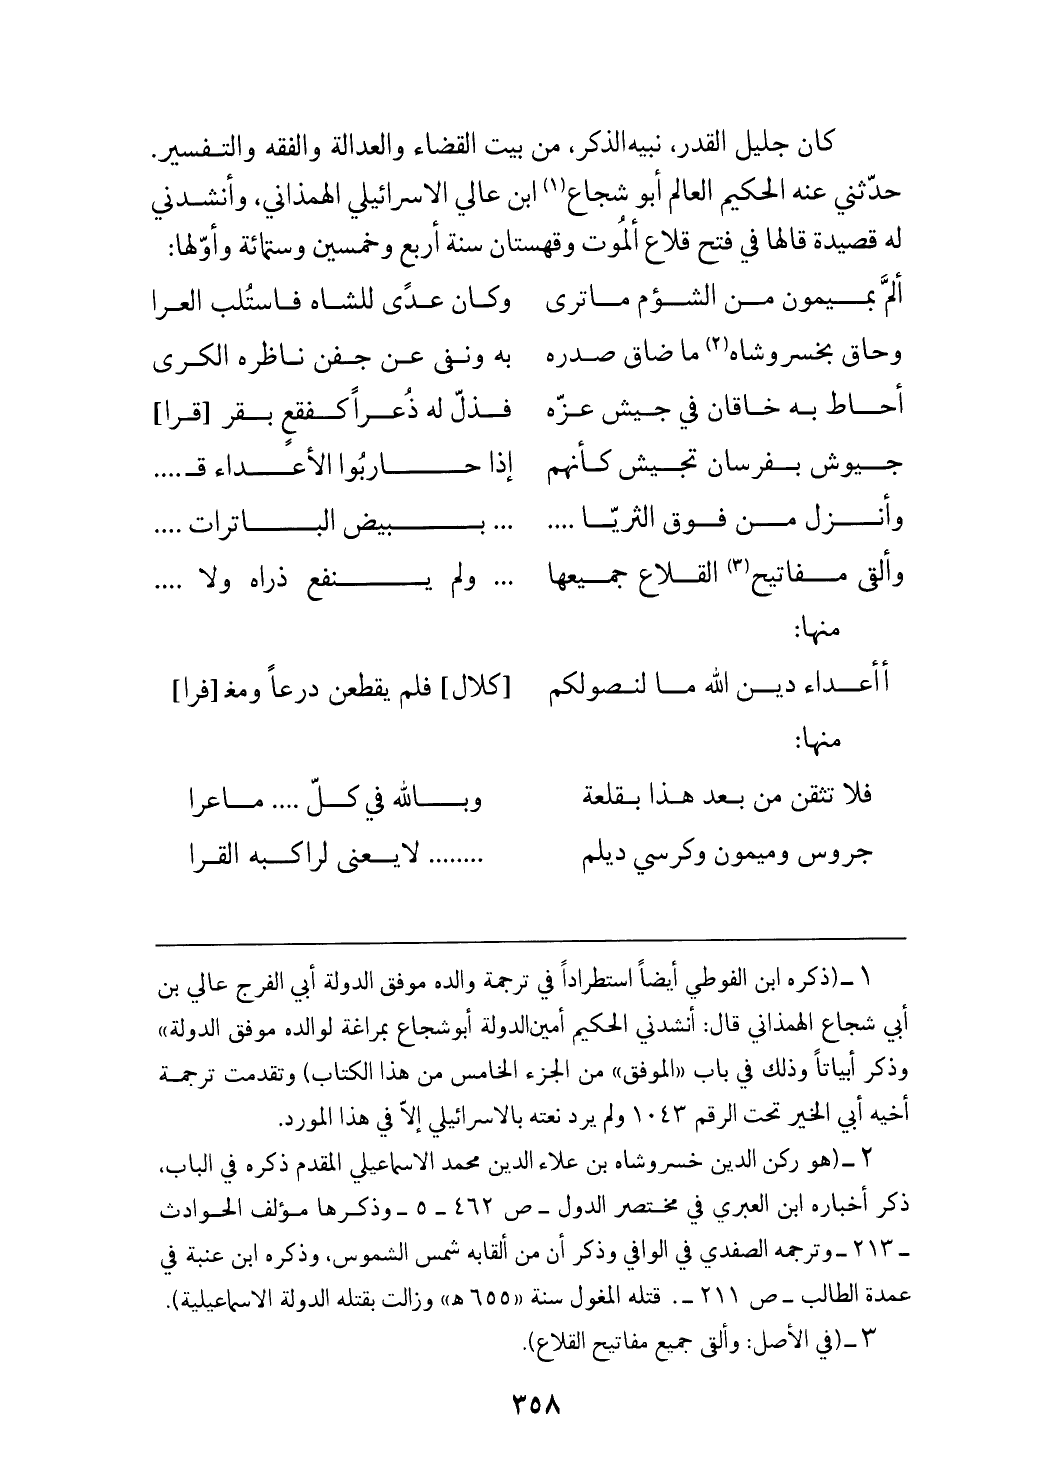 كان جليل القدر، نبيه‌الذكر، من بيت القضاء والعدالة والفقه والتفسير.
حدّثني عنه الحكيم العالم أبو شجاع(١) ابن عالي الاسرائيلي الهمذاني، وأنشدني
له قصيدة قالها في فتح قلاع ألُموت وقهستان سنة أربع وخمسين وستمائة وأوّلها:
ألمَّ بميمون من الشؤم ماترى وكان عدًى للشاه فاستُلب العرا
وحاق بخسروشاه(٢) ما ضاق صدره به ونفى عن جفن ناظره الكرى
أحاط به خاقان في جيش عزّه فذلّ له ذُعراً كفقعٍ بقر [قرا]
جيوش بفرسان تجيش كأنهم إذا حاربُوا الأعداء قـ....
وأنزل من فوق الثريّا .... ... ببيض الباترات ....
وألقى مفاتيح(٣) القلاع جميعها ... ولم ينفع ذراه ولا ....
منها:
أأعداء دين الله ما لنصولكم [كلال] فلم يقطعن درعاً ومغـ[فرا]
منها:
فلا تثقن من بعد هذا بقلعة وبالله في كلّ .... ماعرا
جروس وميمون وكرسي ديلم ........ لايعنى لراكبه القرا
١ ـ(ذكره ابن الفوطي أيضاً استطراداً في ترجمة والده موفق الدولة أبي الفرج عالي بن
أبي شجاع الهمذاني قال: أنشدني الحكيم أمين‌الدولة أبوشجاع بمراغة لوالده موفق الدولة»
وذكر أبياتاً وذلك في باب «الموفق» من الجزء الخامس من هذا الكتاب) وتقدمت ترجمة
أخيه أبي الخير تحت الرقم ١٠٤٣ ولم يرد نعته بالاسرائيلي إلاّ في هذا المورد.
٢ ـ(هو ركن الدين خسروشاه بن علاء الدين محمد الاسماعيلي المقدم ذكره في الباب،
ذكر أخباره ابن العبري في مختصر الدول ـ ص ٤٦٢ ـ ٥ ـ وذكرها مؤلف الحوادث
ـ ٢١٣ ـ وترجمه الصفدي في الوافي وذكر أن من ألقابه شمس الشموس، وذكره ابن عنبة في
عمدة الطالب ـ ص ٢١١ ـ. قتله المغول سنة «٦٥٥ ه» وزالت بقتله الدولة الاسماعيلية).
٣ ـ(في الأصل: وألقى جميع مفاتيح القلاع).
٣٥٨